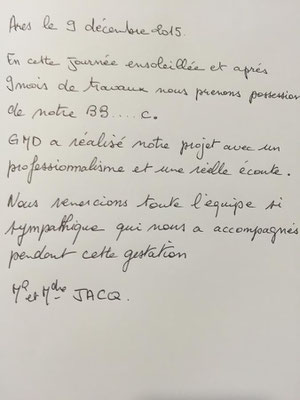 Ares le 9 décembre 2015.
En cette journée ensoleillée et après
9 mois de travaux nous prenons possession
de notre BB.....c.
GMD a réalisé notre projet avec un
professionnalisme et une réelle écoute.
Nous remercions toute l'équipe si
sympathique qui nous a accompagnés
pendant cette gestation
Mr et Mme JACQ.